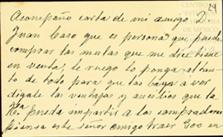 Acompaño carta de mi amigo D.
Juan Caso que es persona que puede
comprar las mulas que me dice tiene
en venta, le ruego lo ponga al
to de todo para que las vaya a ver
dígale las ventajas y auxilios que la
pueda impartir a los comprado
este señor amigo